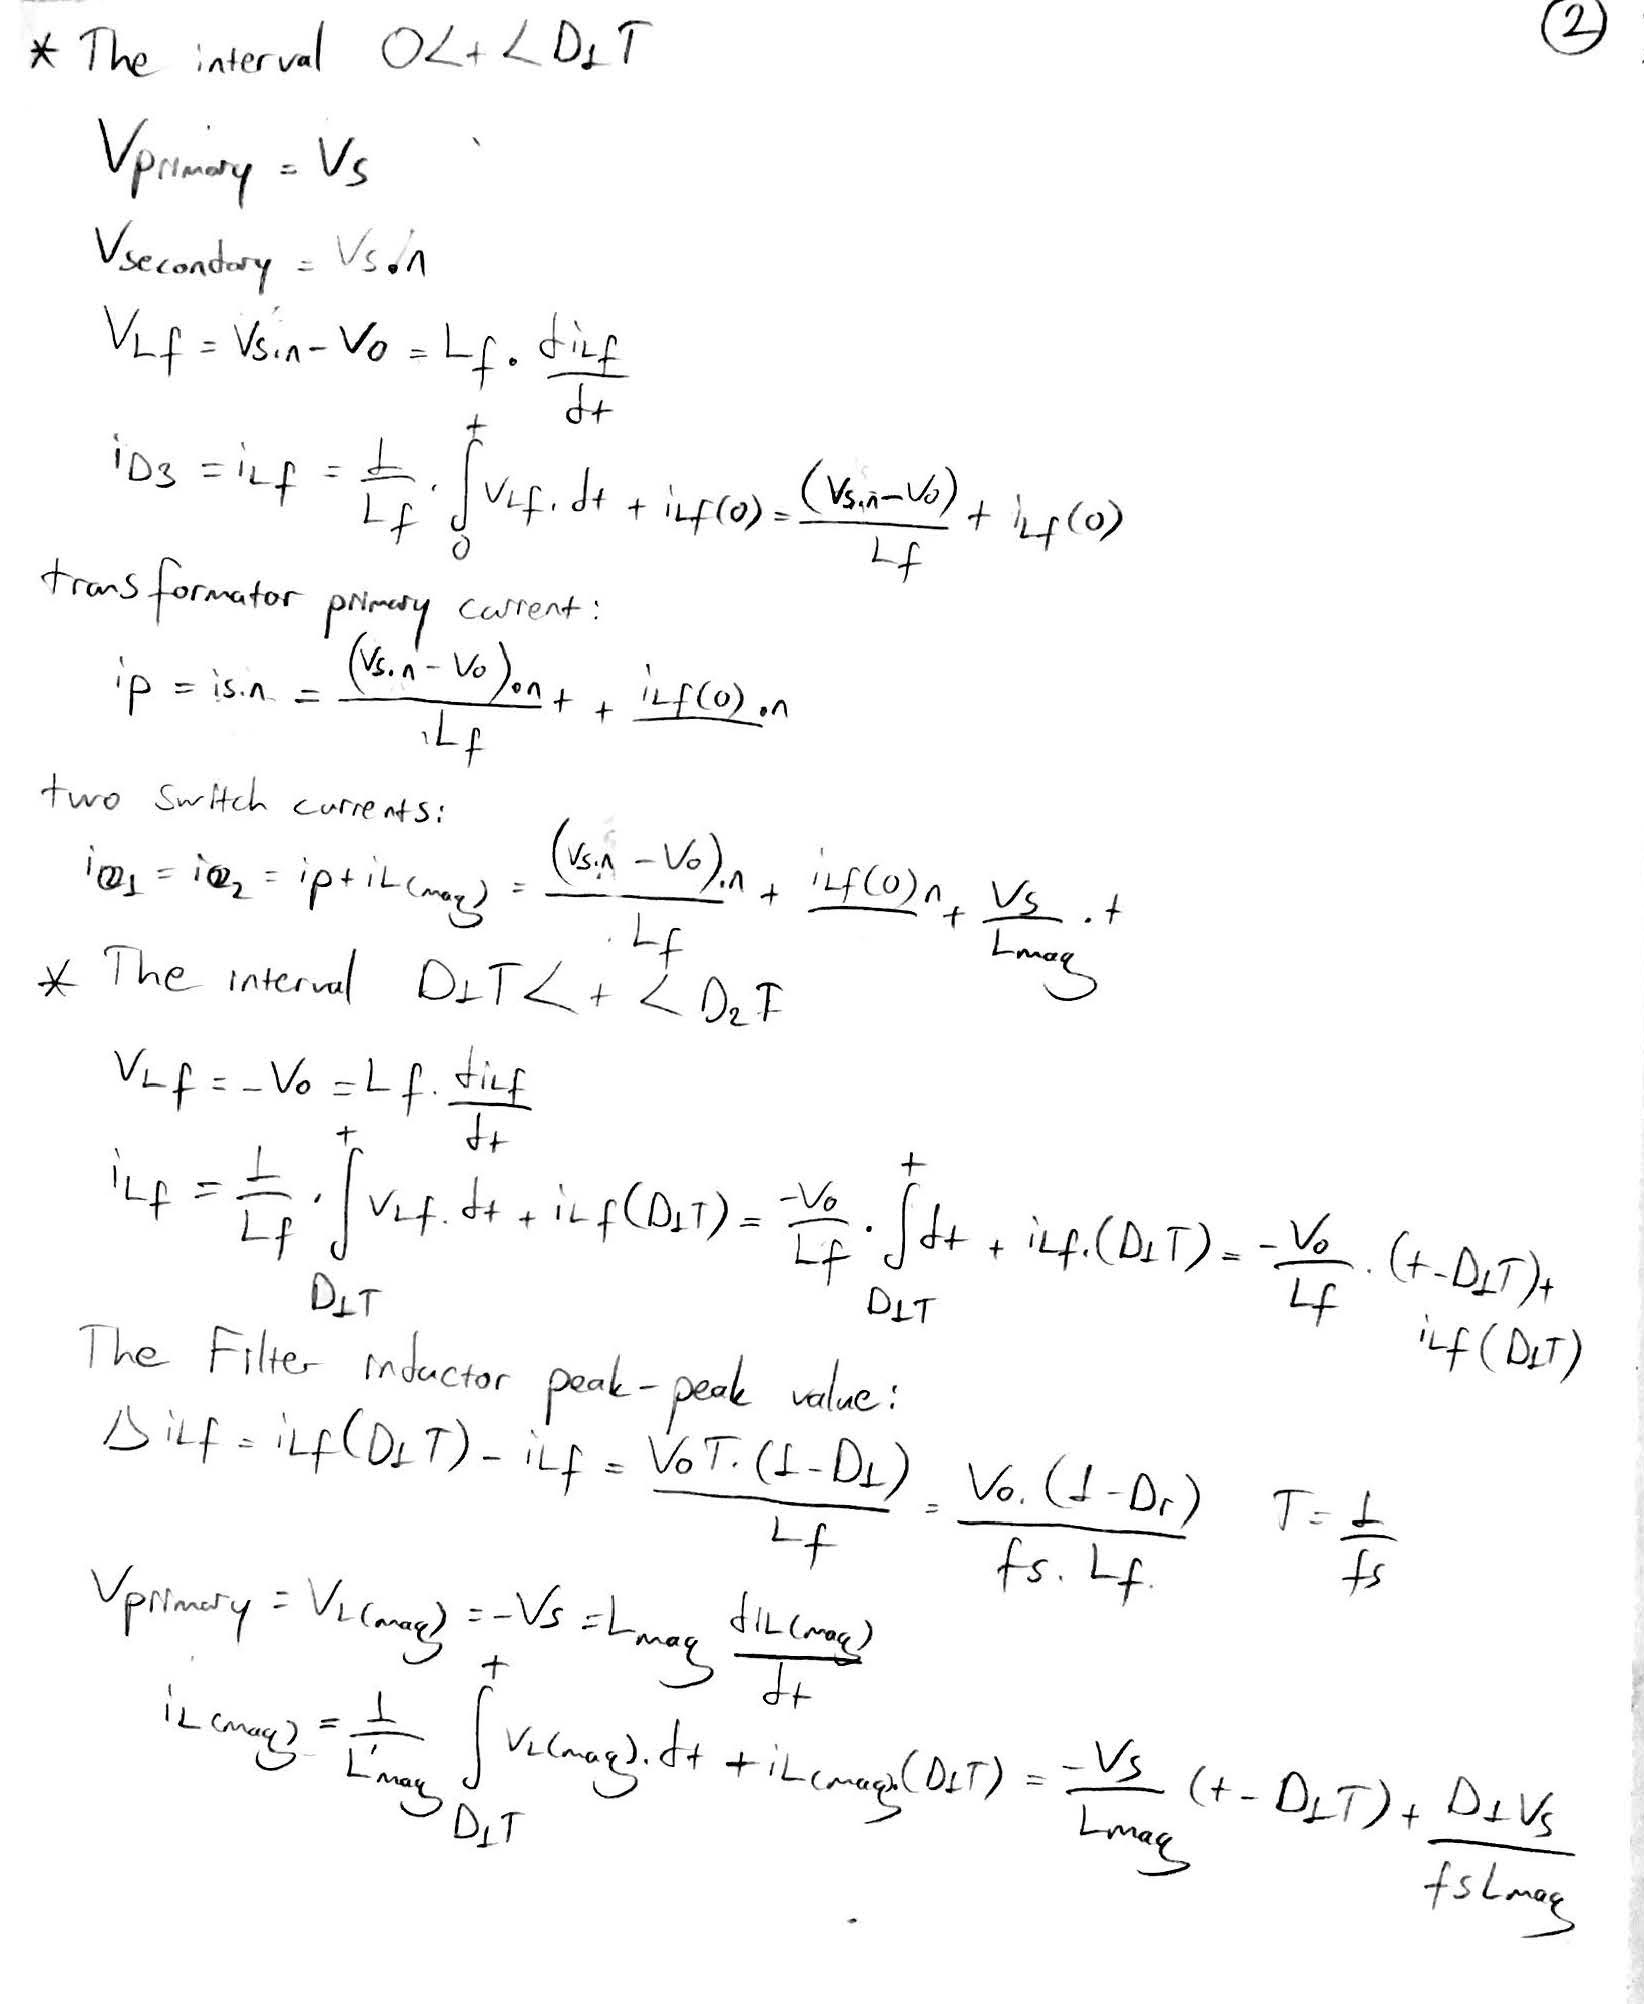 2
* The interval 0 < t < D1T
Vprimary = Vs
Vsecondary = Vs.n
VLf = Vs.n - Vo = Lf . diLf/dt
iD3 = iLf = 1/Lf . ∫_0^t VLf . dt + iLf(0) = (Vs.n - Vo)/Lf + iLf(0)
transformator primary current:
ip = is.n = (Vs.n - Vo).n/Lf t + iLf(0).n
two switch currents:
iQ1 = iQ2 = ip + iL(mag) = (Vs.n - Vo).n/Lf + iLf(0)n + Vs/Lmag . t
* The interval D1T < t < D2T
VLf = -Vo = Lf . diLf/dt
iLf = 1/Lf . ∫_D1T^t VLf . dt + iLf(D1T) = -Vo/Lf . ∫_D1T^t dt + iLf.(D1T) = -Vo/Lf . (t - D1T) +
iLf(D1T)
The Filter inductor peak-peak value:
ΔiLf = iLf(D1T) - iLf = VoT.(1-D1)/Lf = Vo.(1-D1)/fs.Lf. T = 1/fs
Vprimary = VL(mag) = -Vs = Lmag diL(mag)/dt
iL(mag) = 1/Lmag ∫_D1T^t VL(mag) . dt + iL(mag)(D1T) = -Vs/Lmag (t - D1T) + D1Vs/fsLmag